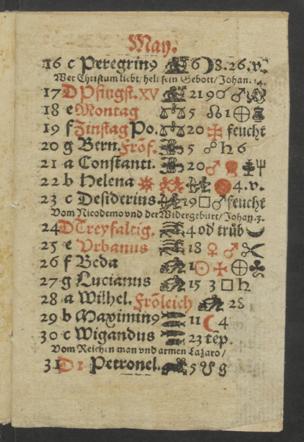 May.
16 c Peregrin9 6 8.26.v.
Wer Christum liebt, helt sein Gebott/Johan. 14.
17 D Pfingst.XV 21 9 ♂
18 e Montag 5 1 ⊕
19 f Zinstag Po. 20 feucht
20 g Bern. Fröf. 5 ☍ ♄ 6
21 a Constanti. 20 ♂
22 b Helena 4.v.
23 c Desiderius 29 □ ♂ feucht
Vom Nicodemo vnd der Widergeburt/Johan. 3.
24 D Treyfaltig. 4 od trüb
25 e Vrbanus 18 ♀ ♂
26 f Beda 1 ☉ ⊕
27 g Lucianus 15 3 □ ♄
28 a Wilhel. Fröleich 28
29 b Maximin9 11 ☾ 4
30 c Wigandus 23 tep.
Vom Reichen man vnd armen Lazaro/
31 D 1 Petronel. 5 8